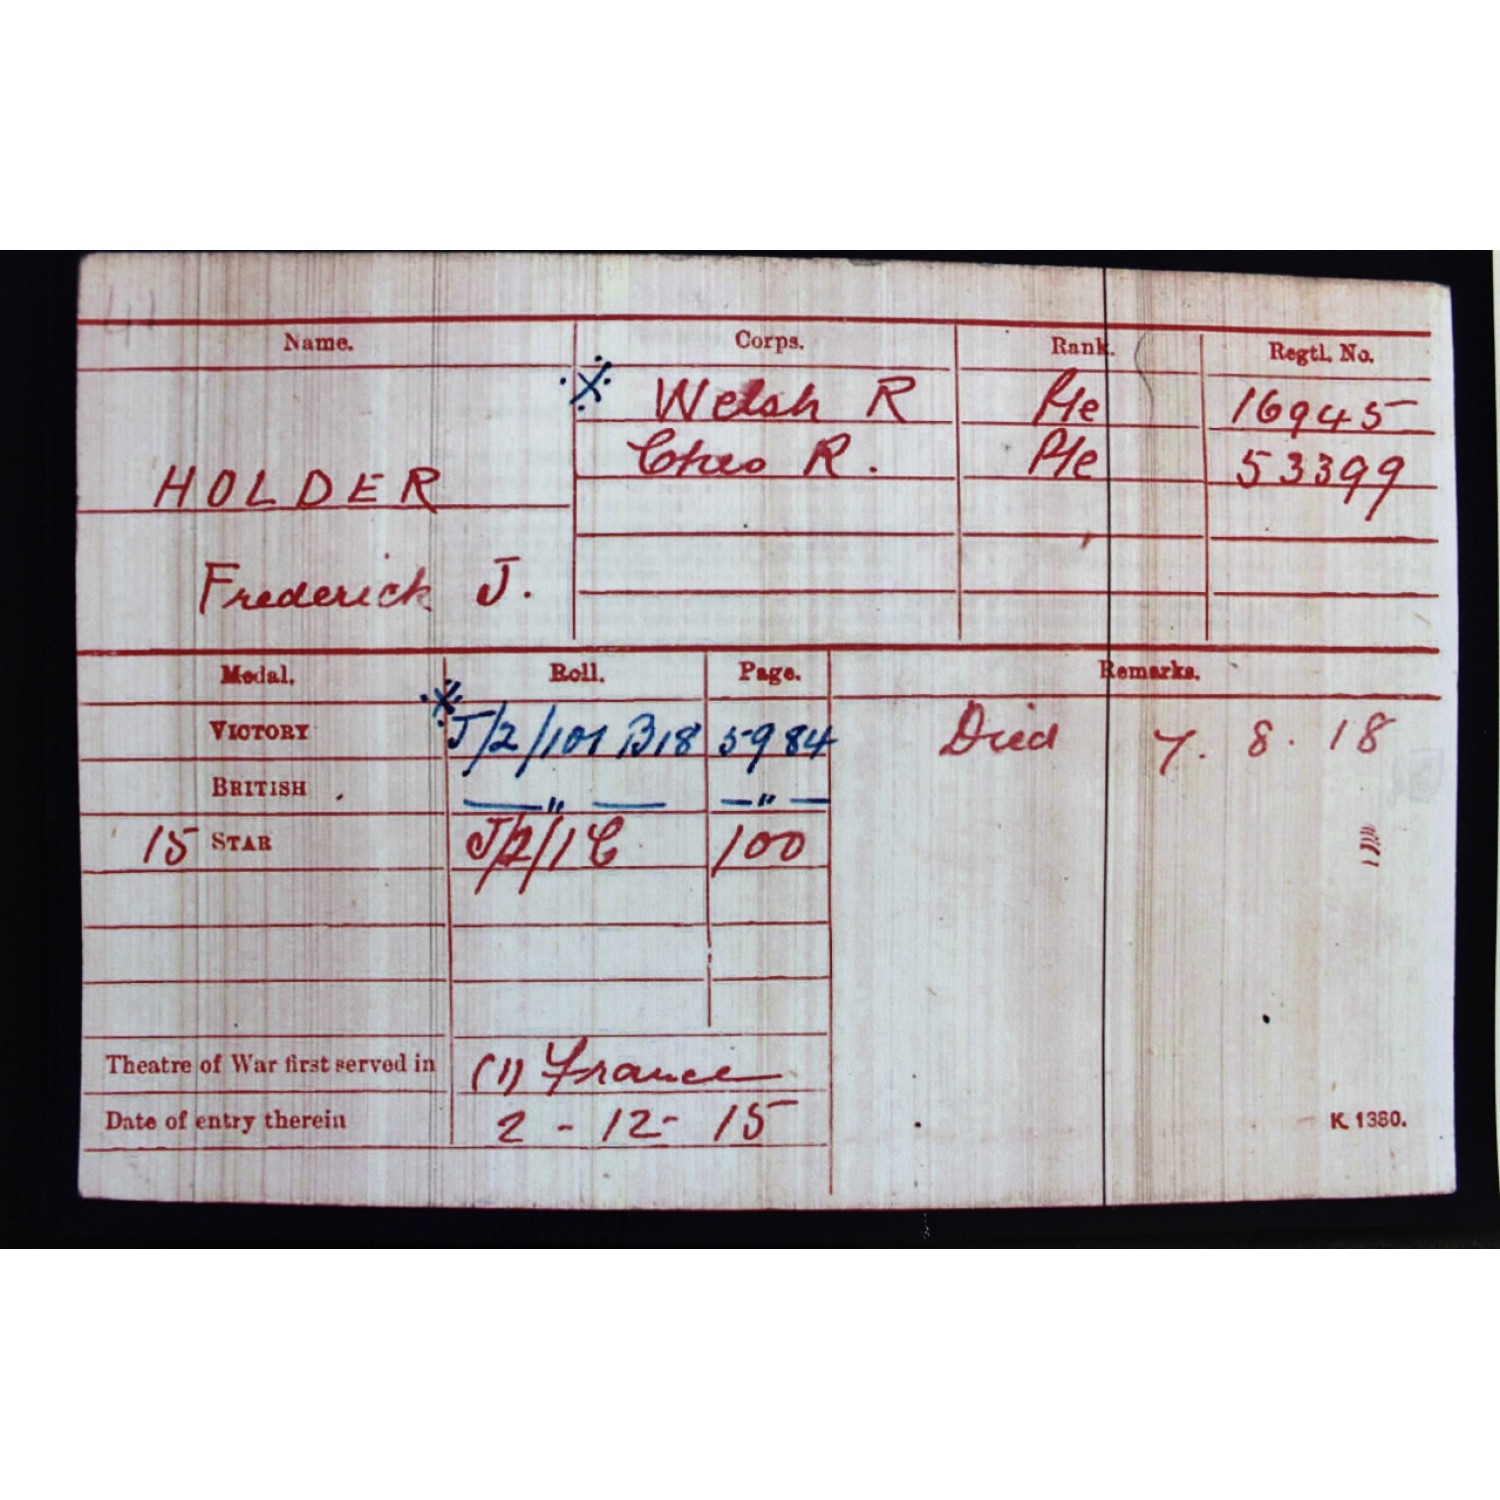 Name. Corps. Rank. Regtl. No.
Welsh R Pte 16945
Ches R. Pte 53399
HOLDER
Frederick J.
Medal. Roll. Page. Remarks.
VICTORY J/2/101 B18 5984 Died 7. 8. 18
BRITISH —„— —„—
15 STAR J/2/1C 100
Theatre of War first served in (1) France
Date of entry therein 2-12-15
K. 1380.